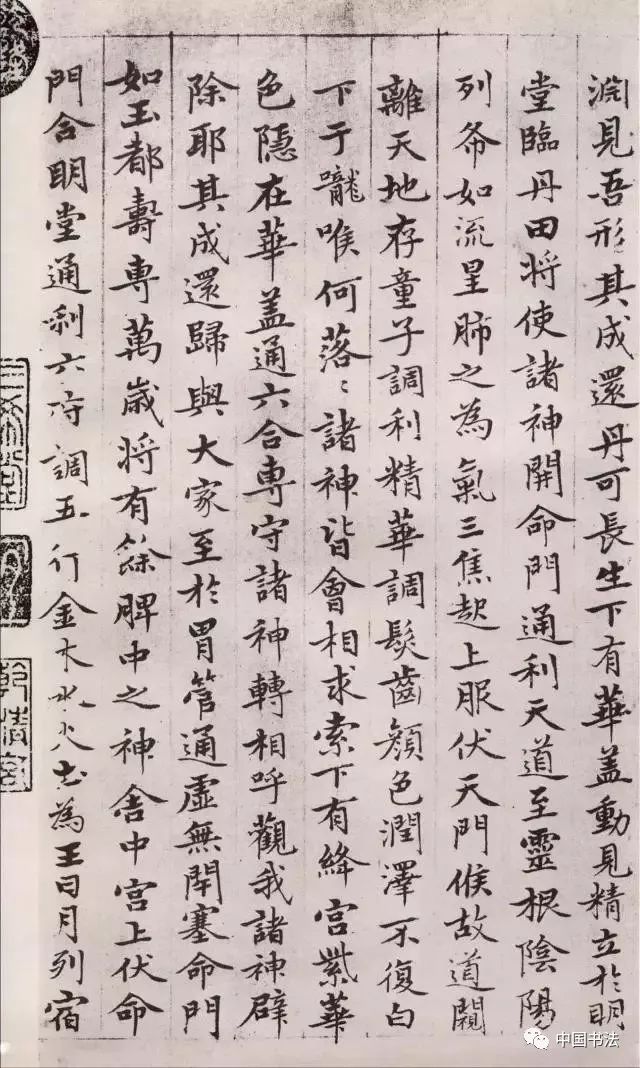 淵見吾形其成還丹可長生下有華盖動見精立於明
堂臨丹田将使諸神開命門通利天道至靈根陰陽
列布如流星肺之為氣三焦起上服伏天門候故道闚
離天地存童子調利精華調髮齒顔色潤澤不復白
下于嚨喉何落〻諸神皆會相求索下有絳宫紫華
色隱在華盖通六合専守諸神轉相呼觀我諸神辟
除耶其成還歸與大家至於胃管通虚無閇塞命門
如玉都壽専萬歳将有餘脾中之神舎中宫上伏命
門合明堂通利六府調五行金木水火土為王日月列宿
乾清宫
中国书法